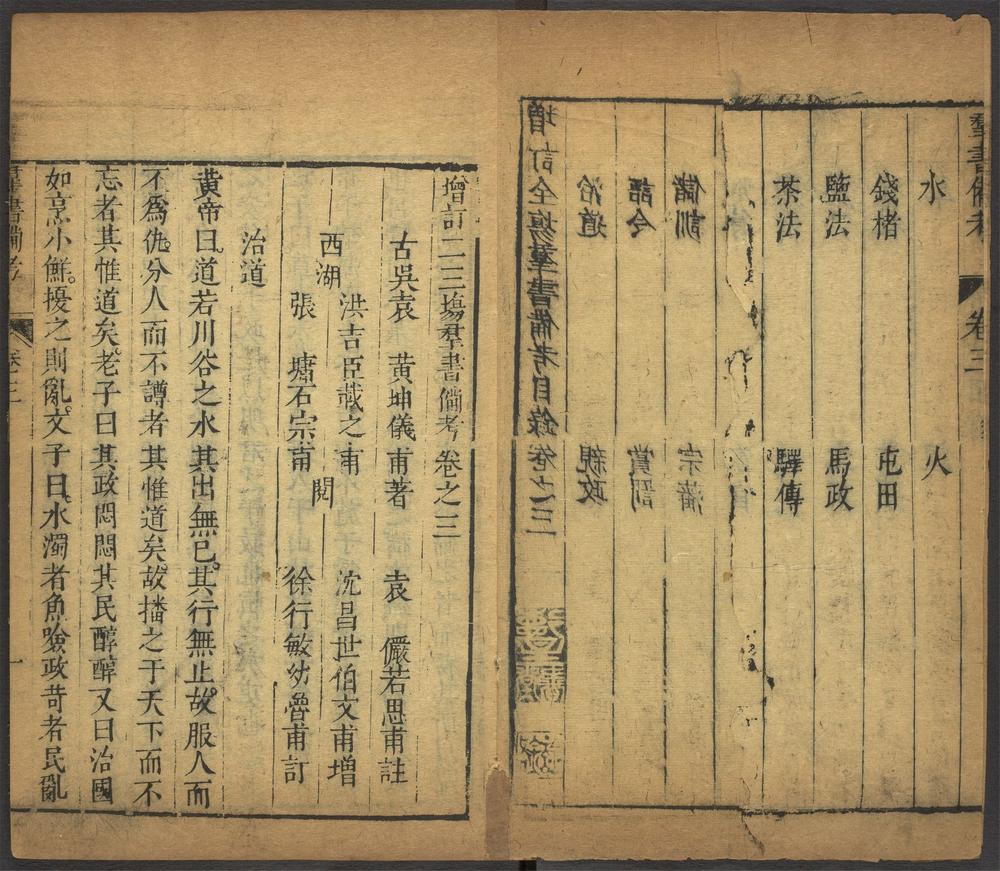 羣書備考 卷三
水 火
錢楮 屯田
鹽法 馬政
茶法 驛傳
儲訓 宗藩
詔令 賞罰
治道 親政
增訂全塲羣書備考目錄卷之三
增訂二三塲羣書備考卷之三
古吳袁 黄坤儀甫著 袁 儼若思甫註
西湖 洪吉臣載之甫 沈昌世伯文甫增
張 墉石宗甫 閱 徐行敏幼魯甫訂
治道
黄帝曰道若川谷之水其出無已其行無止故服人而
不爲仇分人而不譐者其惟道矣故播之于天下而不
忘者其惟道矣老子曰其政悶悶其民醇醇又曰治國
如烹小鮮擾之則亂文子曰水濁者魚噞政苛者民亂
羣書備考 卷三 一